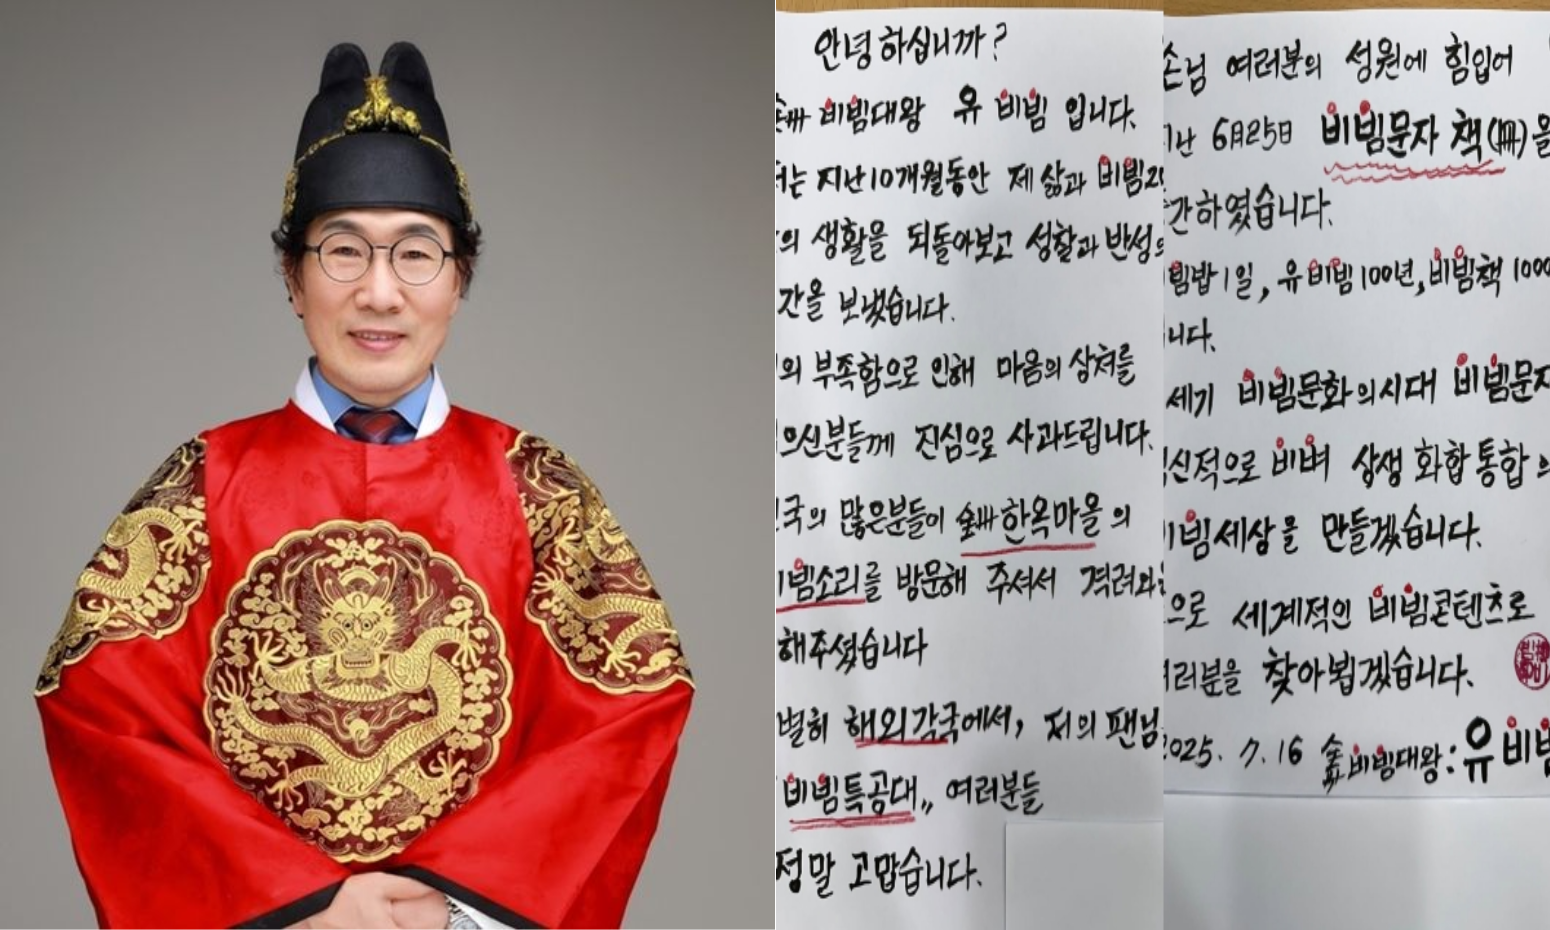 안녕하십니까?
비빔대왕 유비빔 입니다.
는 지난 10개월동안 제 삶과 비빔
의 생활을 되돌아보고 성찰과 반성
간을 보냈습니다.
의 부족함으로 인해 마음의 상처를
으신분들께 진심으로 사과드립니다.
국의 많은분들이 한옥마을의
빔소리를 방문해 주셔서 격려와
해주셨습니다
별히 해외각국에서, 저의 팬님
비빔특공대,, 여러분들
정말 고맙습니다.
손님 여러분의 성원에 힘입어
난 6月25日 비빔문자 책(冊)을
간하였습니다.
빔밥 1일, 유비빔 100년, 비빔책 1000
니다.
세기 비빔문화의시대 비빔문자
신적으로 비벼 상생 화합 통합
빔세상을 만들겠습니다.
으로 세계적인 비빔콘텐츠로
러분을 찾아뵙겠습니다.
2025. 7. 16 비빔대왕: 유비빔